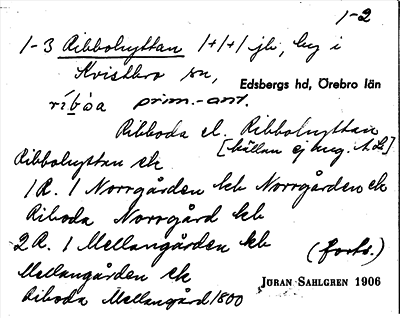 1-2
1-3 Ribbohyttan 1+1+1 jb, by i
Kvistbro sn, Edsbergs hd, Örebro län
ríbòa prim.-ant.
Ribboda el. Ribbohyttan
[källan ej aug. A.L.]
Ribbohyttan ek
1R. 1 Norrgården kb Norrgården ek
Riboda Norrgård kb
2R. 1 Mellangården kb (forts.)
Mellangården ek
Riboda Mellangård 1800 JÖRAN SAHLGREN 1906